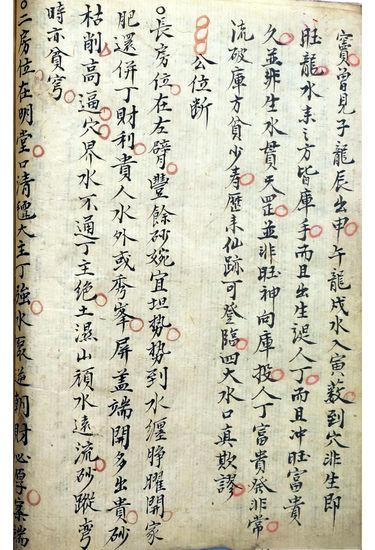 竇曾見子龍辰出申午龍戌水入寅藪到穴非生即
旺龍水來之方皆庫手而且出生誤人丁而且冲旺富貴
久並非生水貫天罡並非旺神向庫投人丁富貴發非常
流破庫方貧少壽歷來仙跡可登臨四大水口真欺謬
公位斷
長房位在左臂豐餘砂婉宜坦勢勢到水纏睜曜開家
肥還併丁財利貴人水外或秀峯屏蓋端開多出貴砂
枯削高逼穴界水不通丁主絕土濕山頑水遠流砂蹤彎
時亦貧穹
二房位在明堂口清纏大主丁強水聚逆朝財必厚案端